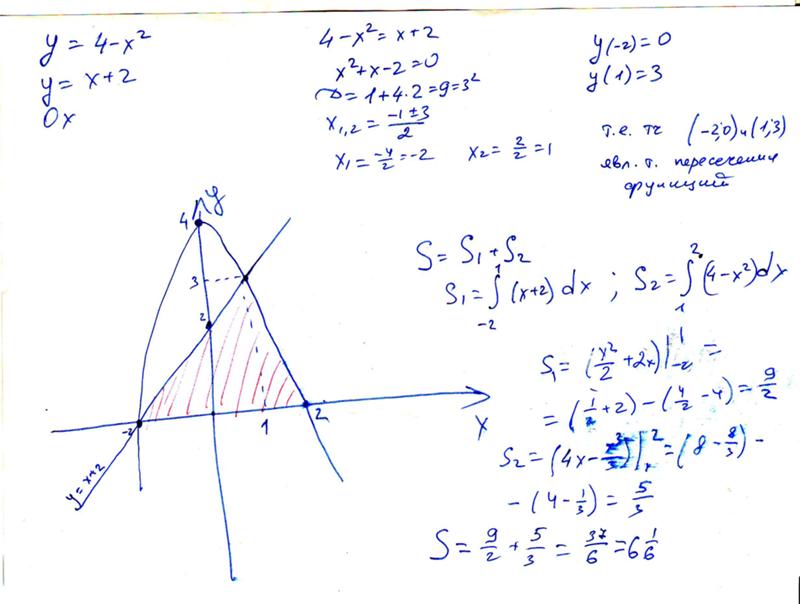 y = 4 - x²
y = x + 2
Ox
4 - x² = x + 2
x² + x - 2 = 0
D = 1 + 4·2 = 9 = 3²
x₁,₂ = (-1 ± 3)/2
x₁ = -4/2 = -2   x₂ = 2/2 = 1
y(-2) = 0
y(1) = 3
т.е. тч (-2;0) и (1;3)
явл. т. пересечения
функций
y
4
3
2
-2
1
2
x
y = x+2
S = S₁ + S₂
S₁ = ∫₋₂¹ (x+2) dx ; S₂ = ∫₁² (4-x²) dx
S₁ = (x²/2 + 2x)|₋₂¹ =
= (1/2 + 2) - (4/2 - 4) = 9/2
S₂ = (4x - x³/3)|₁² = (8 - 8/3) -
- (4 - 1/3) = 5/3
S = 9/2 + 5/3 = 37/6 = 6 1/6